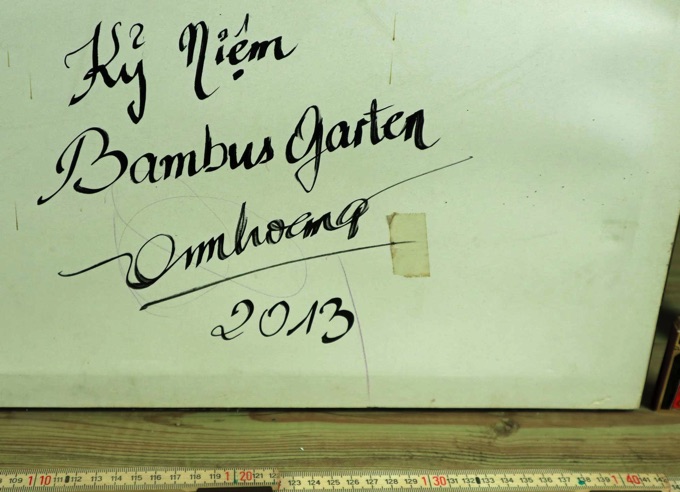 Kỷ Niệm
Bambus Garten
2013
109 1|10 111 112 113 114 115 116 117 118 119 1|20 121 122 123 124 125 126 127 128 129 1|30 131 132 133 134 135 136 137 138 139 1|40 141